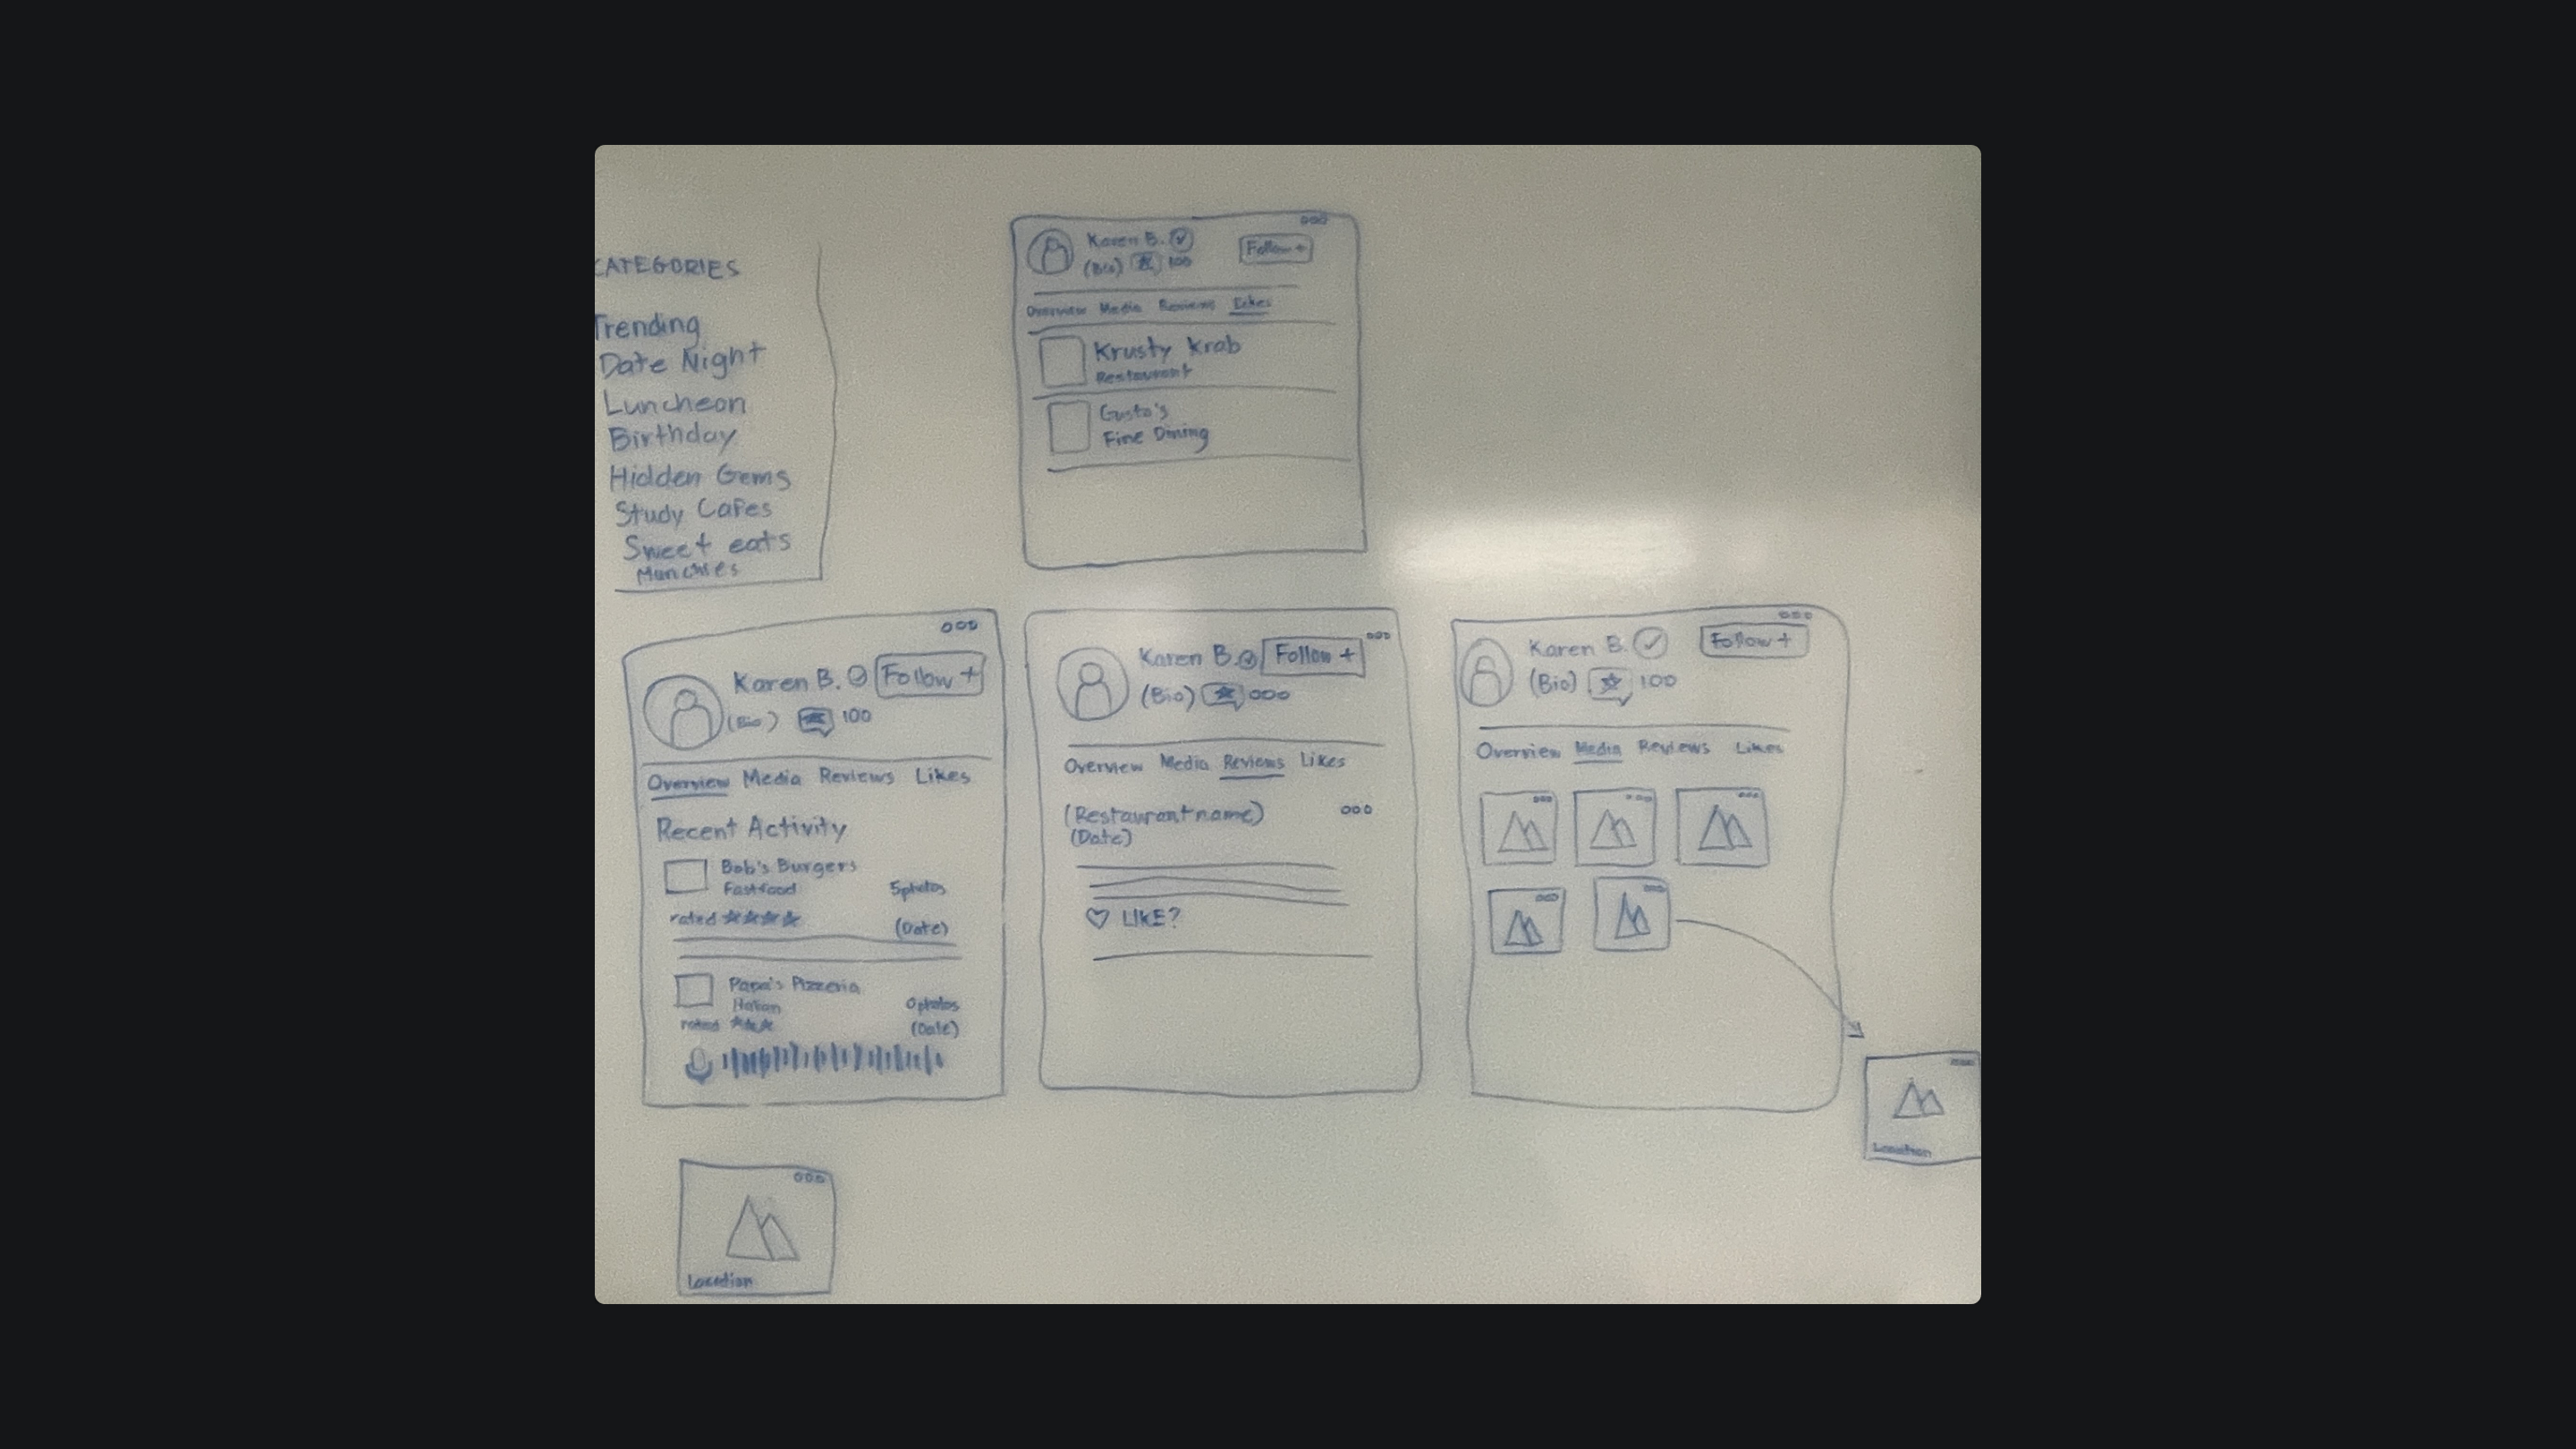 CATEGORIES
Trending
Date Night
Luncheon
Birthday
Hidden Gems
Study Cafes
Sweet eats
Munchies
Karen B.
Follow +
(Bio) 100
Overview Media Reviews Likes
Krusty Krab
Restaurant
Gusto's
Fine Dining
Karen B. Follow +
(Bio) 100
Overview Media Reviews Likes
Recent Activity
Bob's Burgers
Fastfood 5photos
rated
(Date)
Papa's Pizzeria
Italian 0photos
rated (Date)
Karen B. Follow +
(Bio) 000
Overview Media Reviews Likes
(Restaurant name)
(Date)
LIKE?
Karen B. Follow +
(Bio) 100
Overview Media Reviews Likes
Location
Location